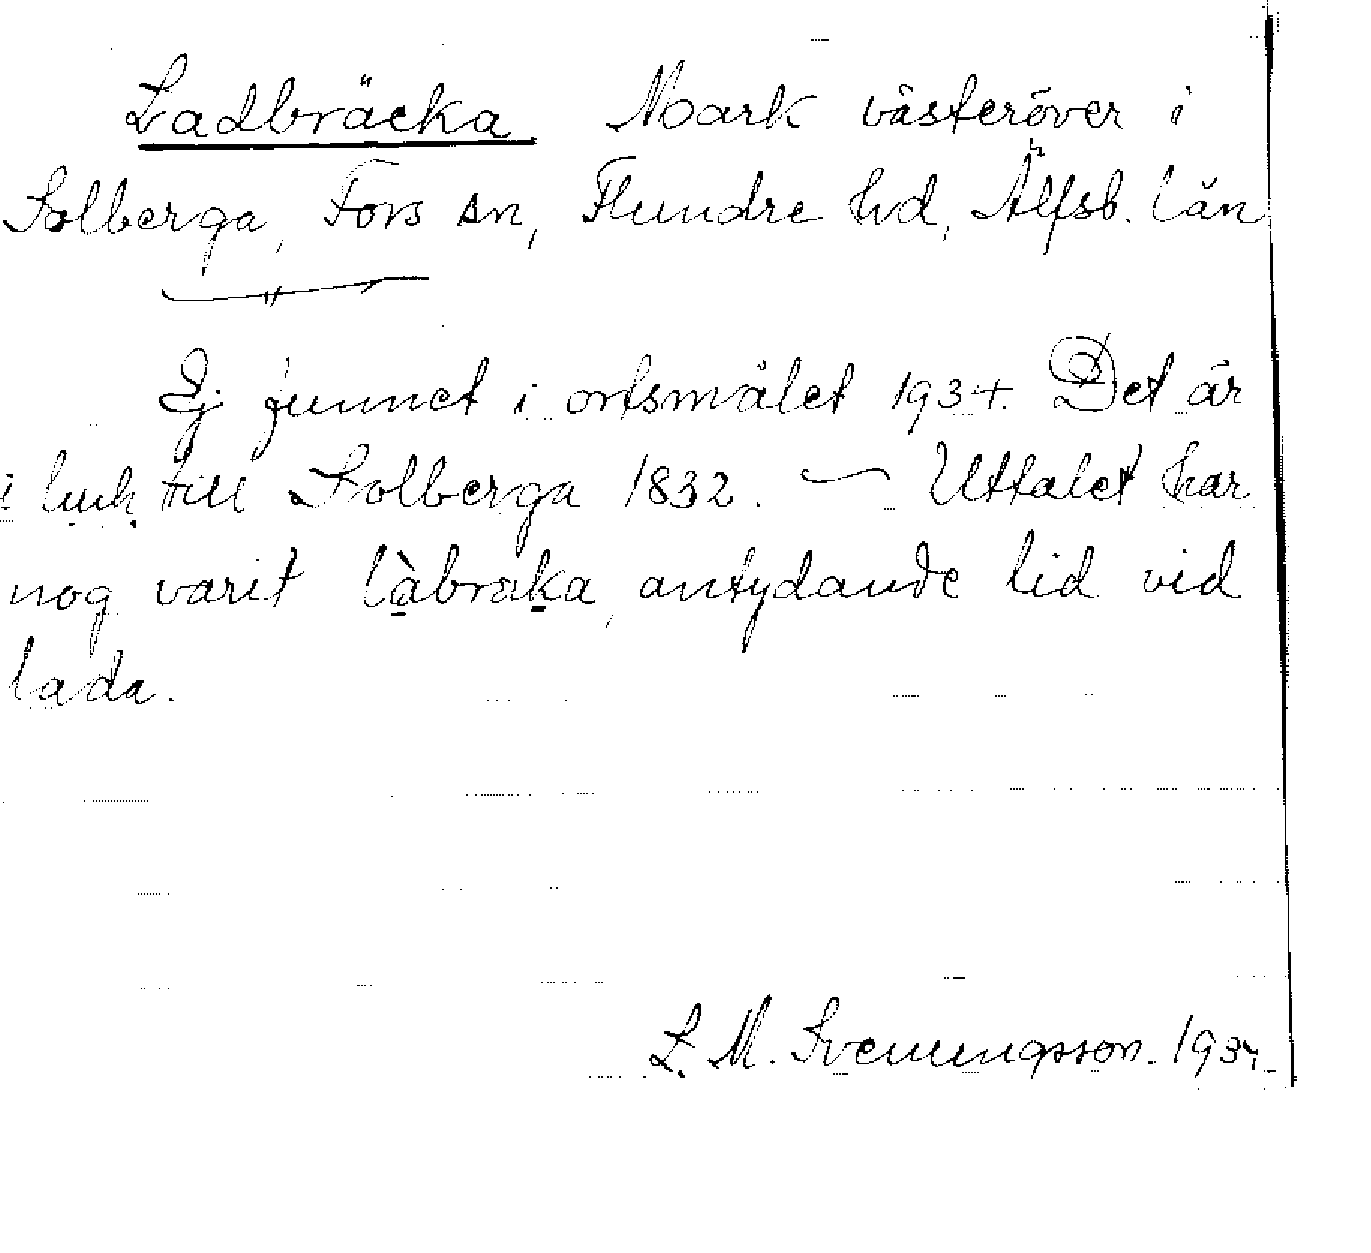 Ladbräcka. Mark västeröver i
Solberga, Fors sn, Flundre hd, Älfsb. län
Ej funnet i ortsmålet 1934. Det är
i luh till Solberga 1832. — Uttalet har
nog varit làbraka, antydande lid vid
lada.
L. M. Svenungsson. 1934.